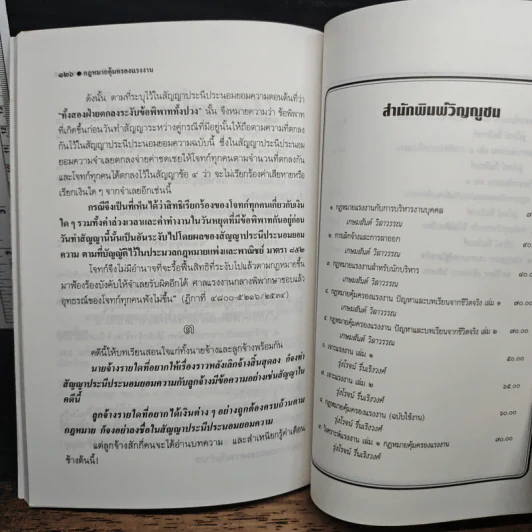 ๑๒๖ ● กฎหมายคุ้มครองแรงงาน
ดังนั้น ตามที่ระบุไว้ในสัญญาประนีประนอมยอมความตอนต้นที่ว่า
"ทั้งสองฝ่ายตกลงระงับข้อพิพาททั้งปวง" นั้น จึงหมายความว่า ข้อพิพาท
ที่เกิดขึ้นก่อนวันทำสัญญาระหว่างคู่กรณีที่มีอยู่นั้นให้ถือตามความที่ตกลง
กันไว้ในสัญญาประนีประนอมยอมความฉบับนี้ ซึ่งในสัญญาประนีประนอม
ยอมความจำเลยตกลงจ่ายค่าชดเชยให้โจทก์ทุกคนตามจำนวนที่ตกลงกัน
และโจทก์ทุกคนได้ตกลงไว้ในสัญญาข้อ ๔ ว่า จะไม่เรียกร้องค่าเสียหายหรือ
เรียกเงินใด ๆ จากจำเลยอีกเช่นนี้
กรณีจึงเป็นที่เห็นได้ว่าสิทธิเรียกร้องของโจทก์ทุกคนเกี่ยวกับเงิน
ใด ๆ รวมทั้งค่าล่วงเวลาและค่าทำงานในวันหยุดที่มีข้อพิพาทกันอยู่ก่อน
วันทำสัญญานี้นั้นเป็นอันระงับไปโดยผลของสัญญาประนีประนอมยอม
ความ ตามที่บัญญัติไว้ในประมวลกฎหมายแพ่งและพาณิชย์ มาตรา ๘๕๒
โจทก์จึงไม่มีอำนาจที่จะรื้อฟื้นสิทธิที่ระงับไปแล้วตามกฎหมายขึ้น
มาฟ้องร้องบังคับให้จำเลยรับผิดอีกได้ ศาลแรงงานกลางพิพากษาชอบแล้ว
อุทธรณ์ของโจทก์ทุกคนฟังไม่ขึ้น" (ฎีกาที่ ๔๘๐๐-๕๒๑๖/๒๕๓๔)
คดีนี้ให้บทเรียนสอนใจแก่ทั้งนายจ้างและลูกจ้างพร้อมกัน
นายจ้างรายใดที่อยากให้เรื่องราวหลังเลิกจ้างสิ้นสุดลง ก็จงทำ
สัญญาประนีประนอมยอมความกับลูกจ้างมีข้อความอย่างเช่นสัญญาใน
คดีนี้
ลูกจ้างรายใดที่อยากได้เงินต่าง ๆ อย่างถูกต้องครบถ้วนตาม
กฎหมาย ก็จงอย่าลงชื่อในสัญญาประนีประนอมยอมความ
แต่ลูกจ้างสักกี่คนจะได้อ่านบทความ และสำเหนียกรู้คำเตือน
ข้างต้นนี้!
สำนักพิมพ์วิญญูชน
๑. กฎหมายแรงงานกับการบริหารงานบุคคล
เกษมสันต์ วิลาวรรณ
๒. การเลิกจ้างและการลาออก
เกษมสันต์ วิลาวรรณ
๓. กฎหมายแรงงานสำหรับนักบริหาร
เกษมสันต์ วิลาวรรณ
๔. กฎหมายคุ้มครองแรงงาน ปัญหาและบทเรียนจากชีวิตจริง เล่ม ๑ ๗๐.๐๐
เกษมสันต์ วิลาวรรณ
๕. กฎหมายคุ้มครองแรงงาน ปัญหาและบทเรียนจากชีวิตจริง เล่ม ๒ ๗๐.๐๐
เกษมสันต์ วิลาวรรณ
๖. เจาะแรงงาน เล่ม ๑ ๕๐.๐๐
รุ่งโรจน์ รื่นเริงวงศ์
๗. เจาะแรงงาน เล่ม ๒ ๖๕.๐๐
รุ่งโรจน์ รื่นเริงวงศ์
๘. กฎหมายคุ้มครองแรงงาน (ฉบับใช้งาน) ๖๐.๐๐
รุ่งโรจน์ รื่นเริงวงศ์
๙. วิเคราะห์แรงงาน เล่ม ๑ กฎหมายคุ้มครองแรงงาน ๗๐.๐๐
รุ่งโรจน์ รื่นเริงวงศ์